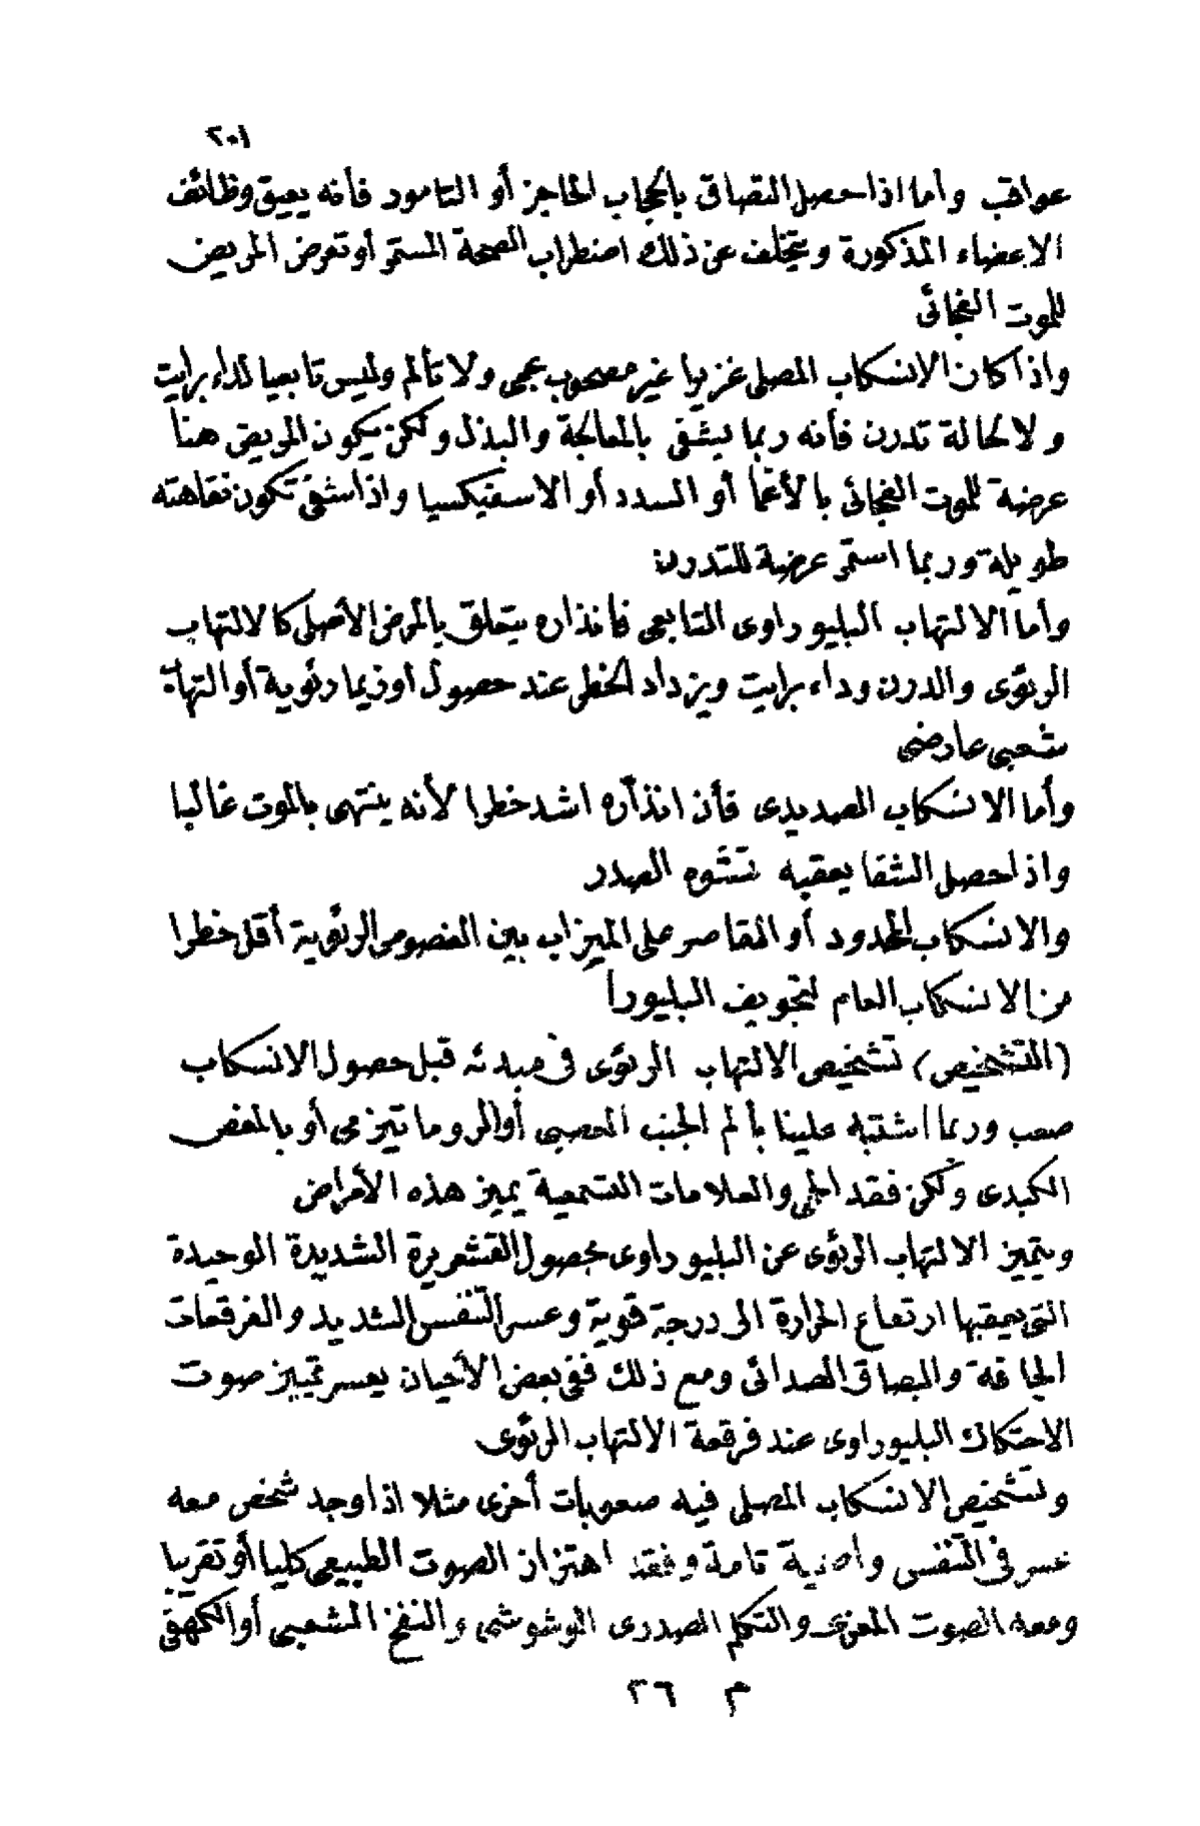 ٢٠١
عواقب وأما اذا حصل التصاق بالحجاب الحاجز أو التامود فأنه يعيق وظائف
الاعضاء المذكورة ويتخلف عن ذلك اضطراب الصحة المستمر أو تعرض المريض
للموت الفجائى
واذا كان الانسكاب المصلى غزيرا غير مصحوب بحمى ولا تألم وليس تابعيا لداء برايت
ولا لحالة تدرن فأنه ربما يشفى بالمعالجة والبذل ولكن يكون المريض هنا
عرضة للموت الفجائى بالأغما أو السدد أو الاسفيكسيا واذا شفى تكون نقاهته
طويلة وربما استمر عرضة للتدرن
وأما الالتهاب البليوراوى التابعى فانذاره يتعلق بالمرض الأصلى كالالتهاب
الرئوى والدرن وداء برايت ويزداد الخطر عند حصول أوذيما رئوية أو التهاب
شعبى عارضى
وأما الانسكاب الصديدى فأن انذاره اشد خطرا لأنه ينتهى بالموت غالبا
واذا حصل الشفا يعقبه تشوه الصدر
والانسكاب المحدود أو القاصر على الميزاب بين الفصوص الرئوية أقل خطرا
من الانسكاب العام لتجويف البليورا
(التشخيص) تشخيص الالتهاب الرئوى فى مبدئه قبل حصول الانسكاب
صعب وربما اشتبه علينا بألم الجنب العصبى أو الروماتيزمى أو بالمغص
الكبدى ولكن فقد الحمى والعلامات التسمعية يميز هذه الأمراض
ويتميز الالتهاب الرئوى عن البليوراوى بحصول القشعريرة الشديدة الوحيدة
التى يعقبها ارتفاع الحرارة الى درجة قوية وعسر التنفس الشديد والفرقعات
الجافة والبصاق الصدائى ومع ذلك ففى بعض الأحيان يعسر تمييز صوت
الاحتكاك البليوراوى عند فرقعة الالتهاب الرئوى
وتشخيص الانسكاب المصلى فيه صعوبات أخرى مثلا اذا وجد شخص معه
عسر فى التنفس وأصمية تامة وفقد اهتزاز الصوت الطبيعى كليا أو تقريبا
ومعه الصوت المعزى والتكلم الصدرى الوشوشى والنفخ الشعبى أو الكهفى
م ٢٦